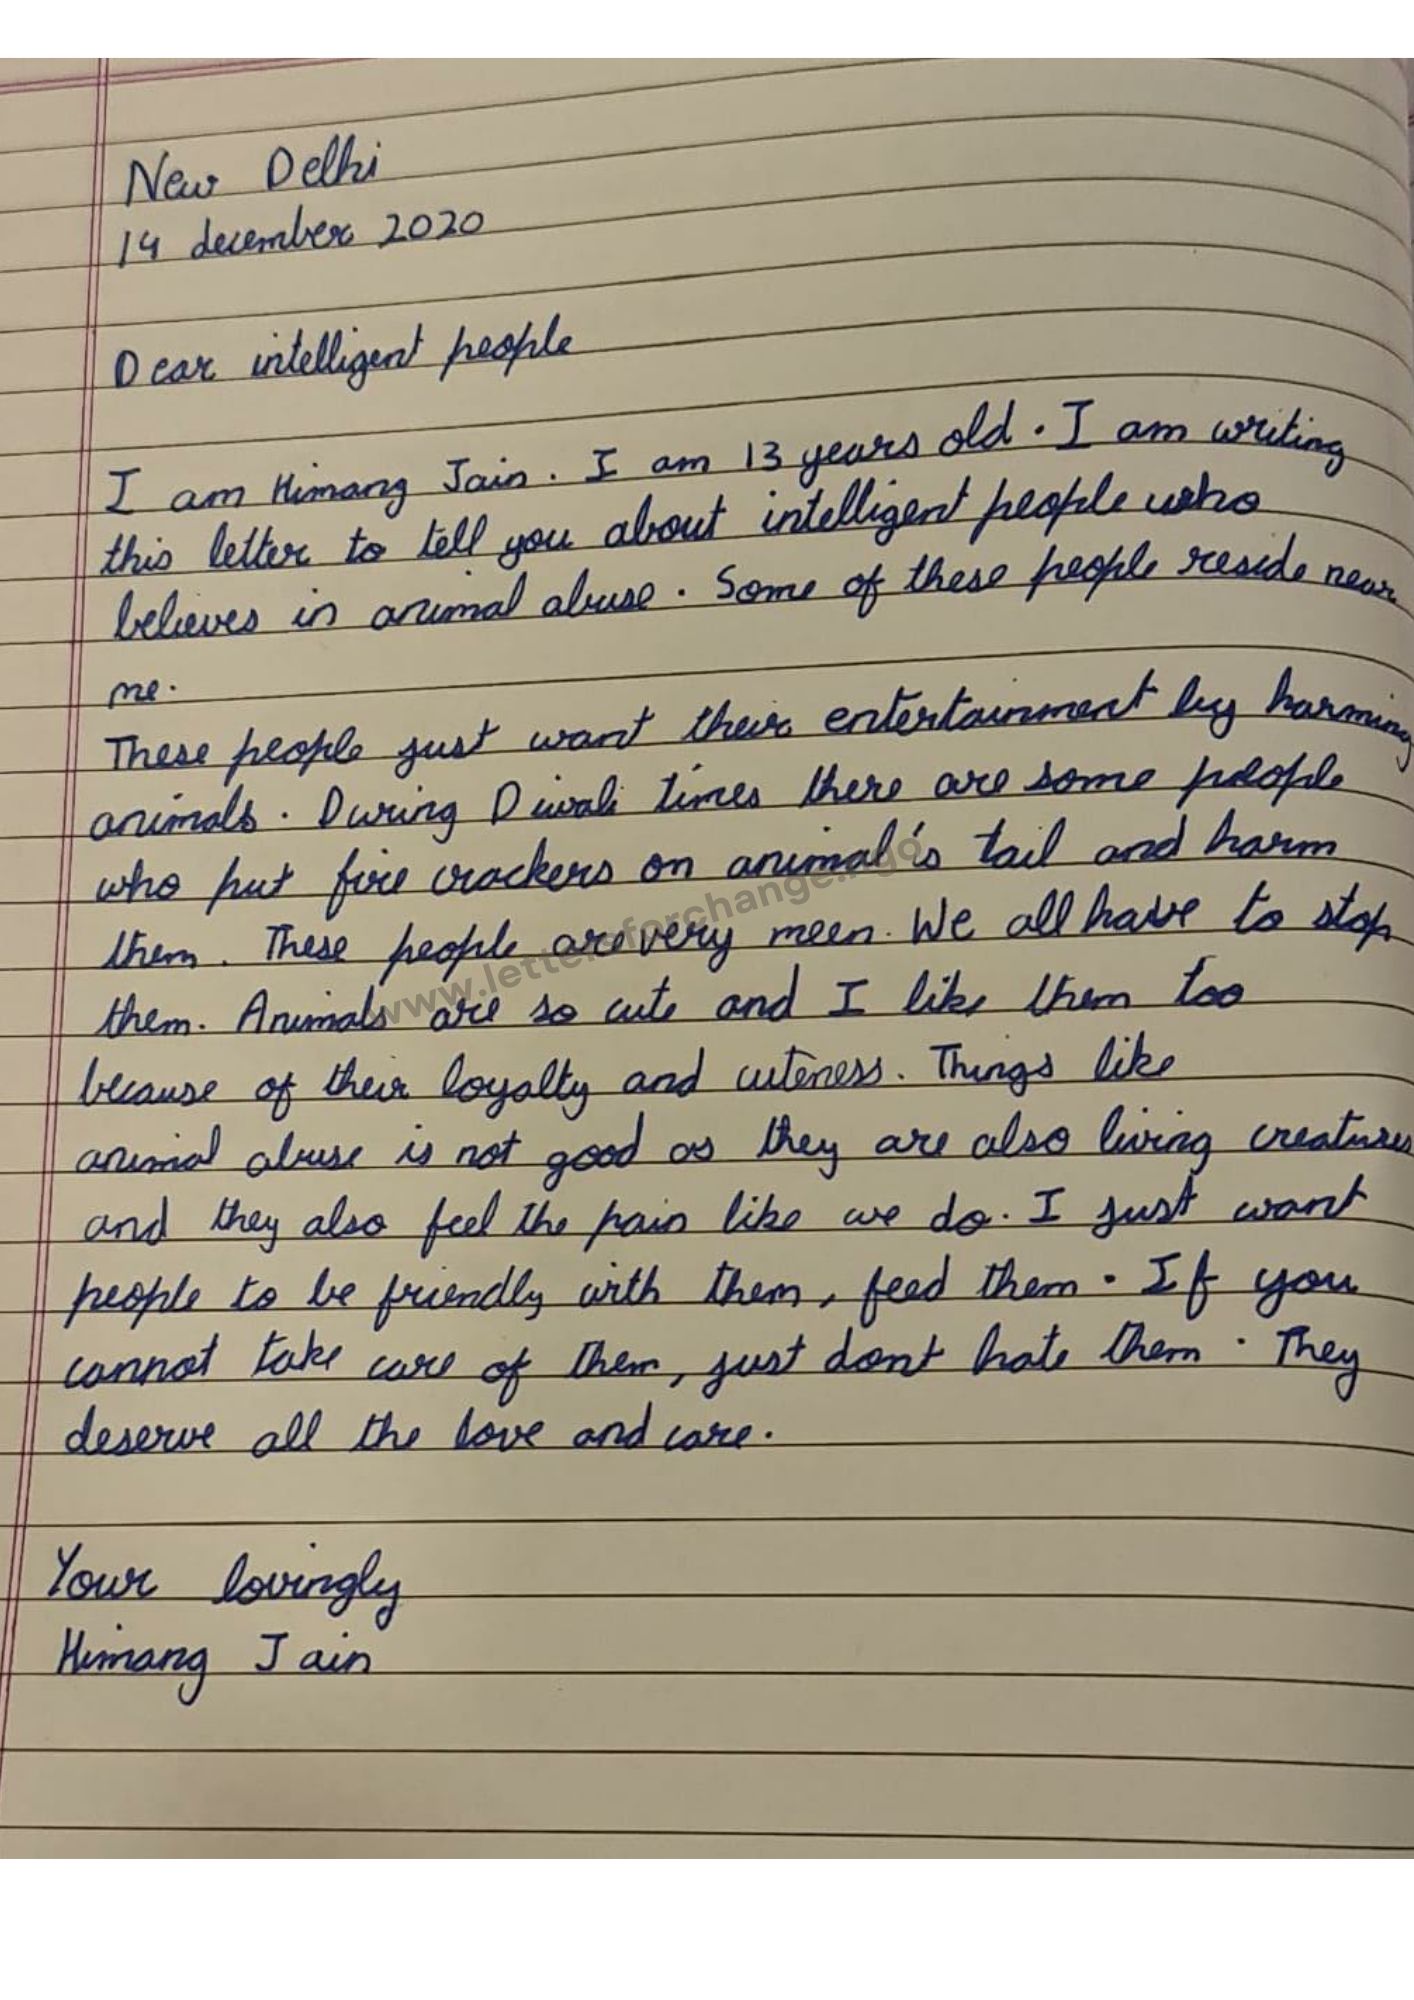 New Delhi
14 december 2020
Dear intelligent people
I am Himang Jain. I am 13 years old. I am writing
this letter to tell you about intelligent people who
believes in animal abuse. Some of these people reside near
me.
These people just want their entertainment by harming
animals. During Diwali times there are some people
who put fire crackers on animal's tail and harm
them. These people are very meen. We all have to stop
them. Animals are so cute and I like them too
because of their loyalty and cuteness. Things like
animal abuse is not good as they are also living creatures
and they also feel the pain like we do. I just want
people to be friendly with them, feed them. If you
cannot take care of them, just dont hate them. They
deserve all the love and care.
Your lovingly
Himang Jain
www.lettersforchange.ngo